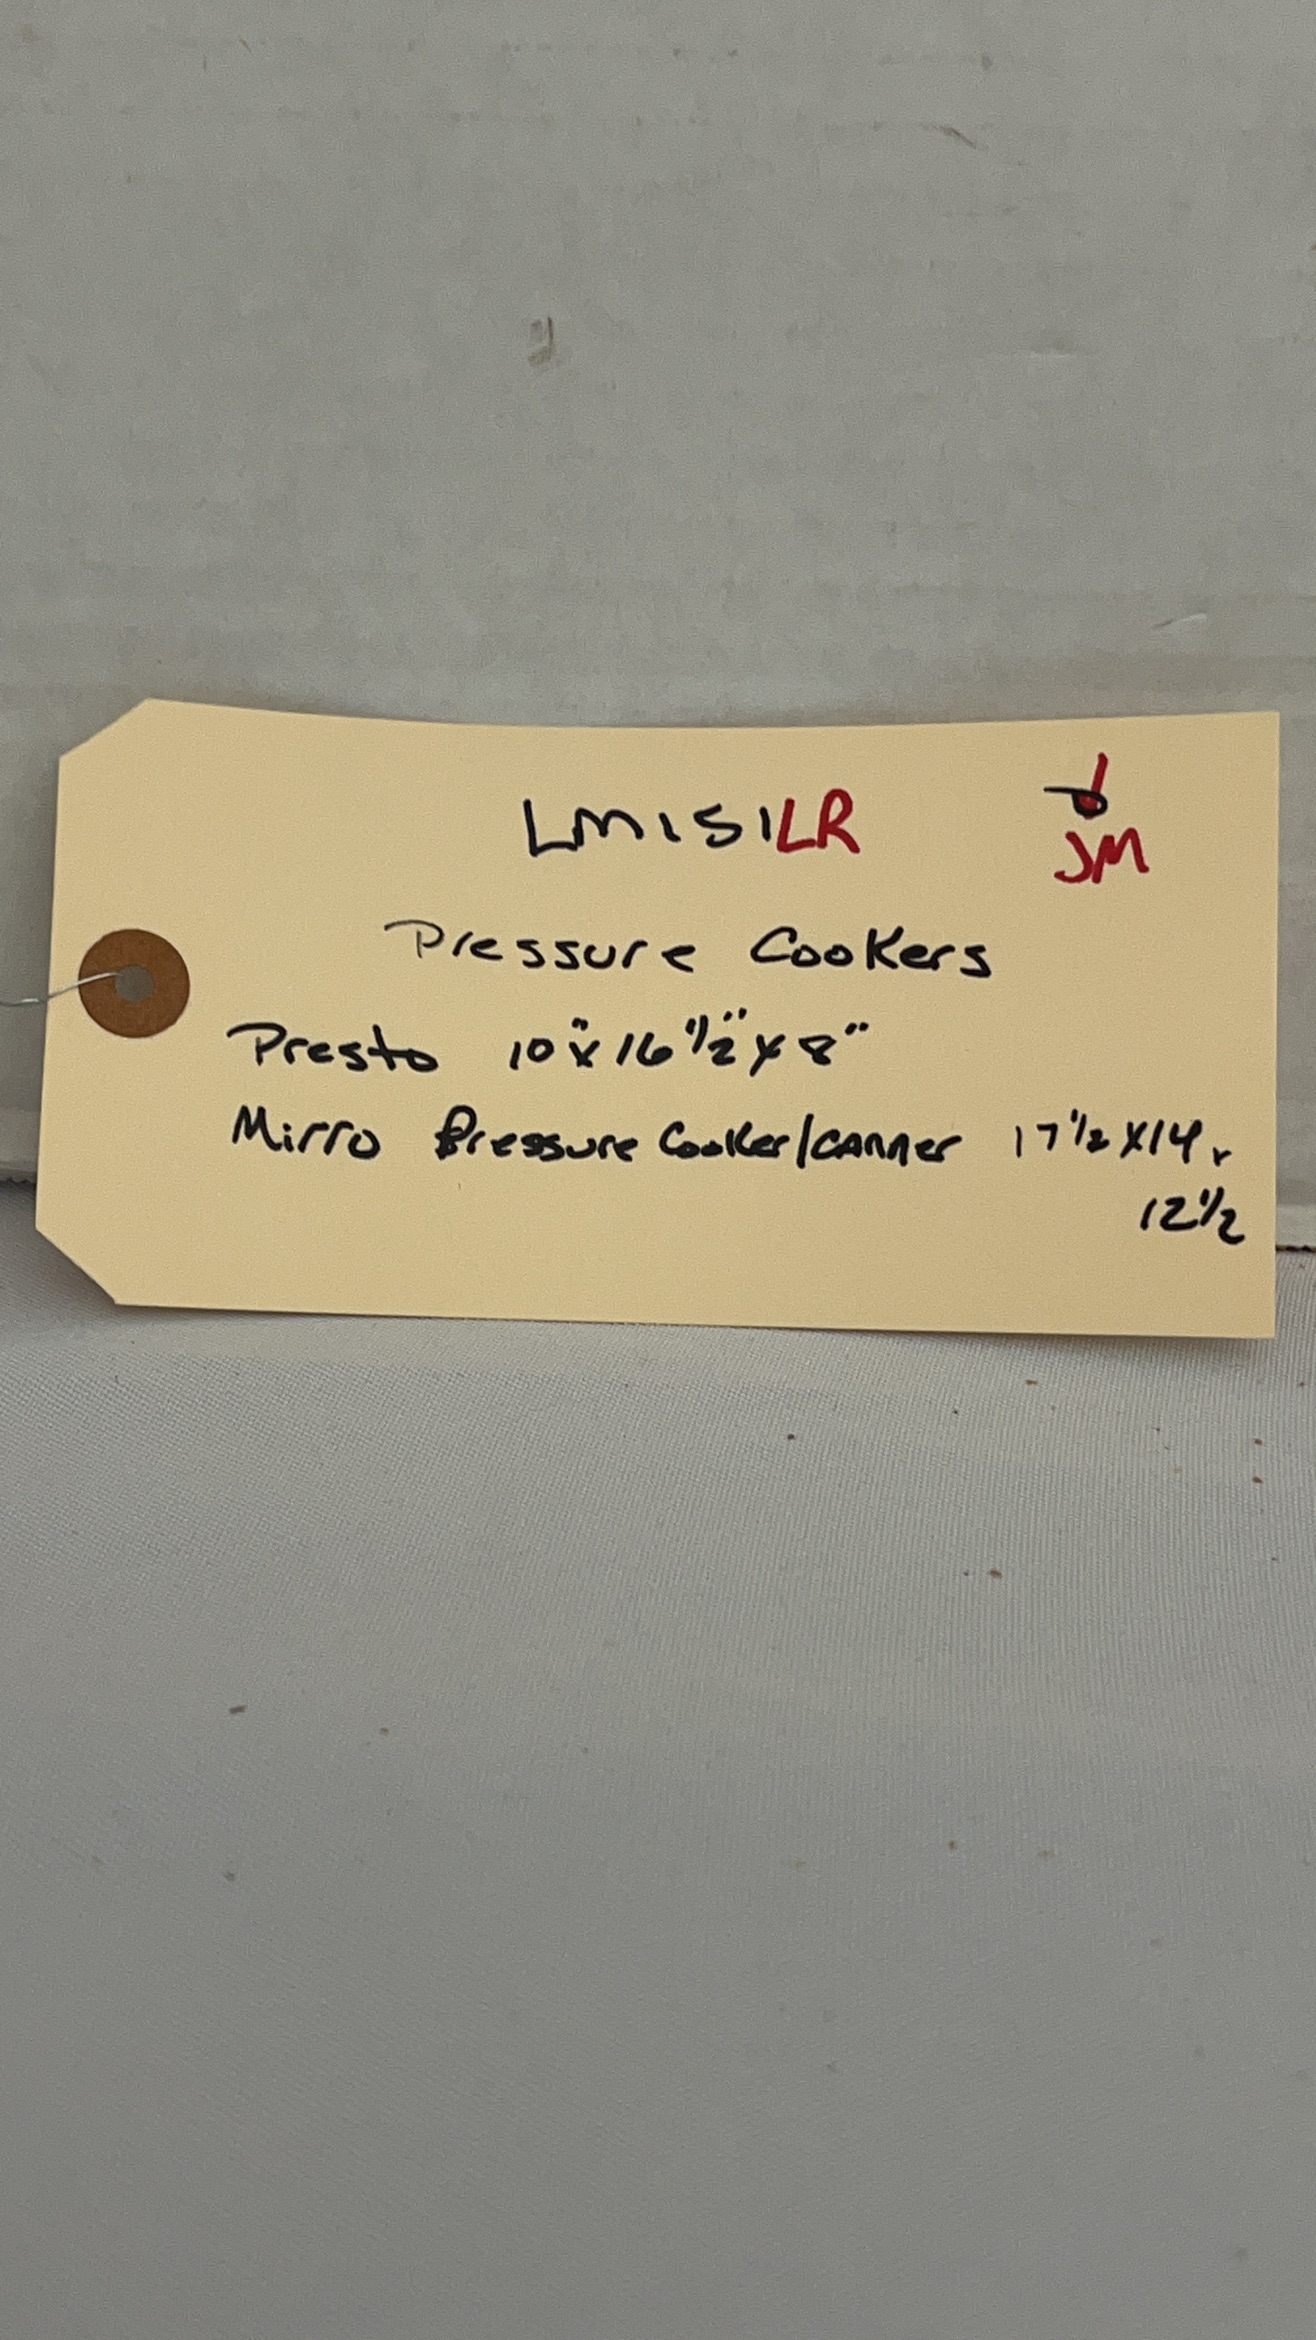 LM151LR
JM
Pressure Cookers
Presto 10" x 16 1/2" x 8"
Mirro Pressure Cooker/CANNER 17 1/2 x 14 x
12 1/2